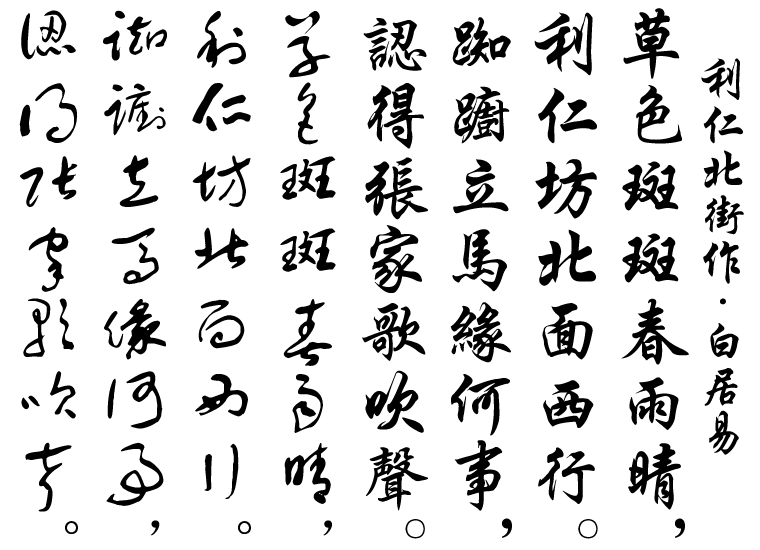 利仁北街作·白居易
草色斑斑春雨晴，
利仁坊北面西行。
踟躕立馬緣何事，
認得張家歌吹聲。
草色斑斑春雨晴，
利仁坊北面西行。
踟躕立馬緣何事，
認得張家歌吹聲。